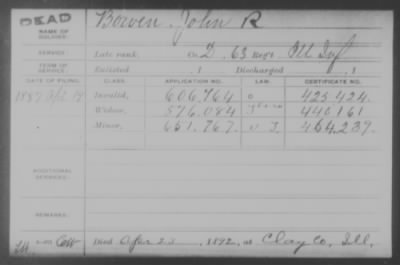 DEAD Bowen, John R
NAME OF SOLDIER:
SERVICE: Late rank, Co. D, 63 Reg't Ill Inf
TERM OF SERVICE: Enlisted , 1 Discharged , 1
DATE OF FILING. CLASS. APPLICATION NO. LAW. CERTIFICATE NO.
1887 Invalid, 606.764 425.424.
Widow, 576.084 440.161
Minor, 651.767. 464.239.
ADDITIONAL SERVICES:
REMARKS:
Died 1892, at Clay Co, Ill.